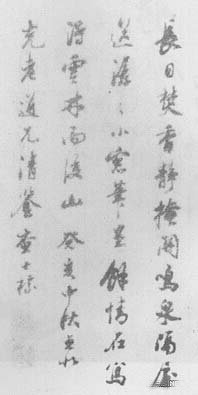 長日焚香靜掩關鳴泉隔屋
送潺〻小窗筆墨餘情在寫
得雲林雨後山 癸亥中秋
老道兄清鑒 查士標